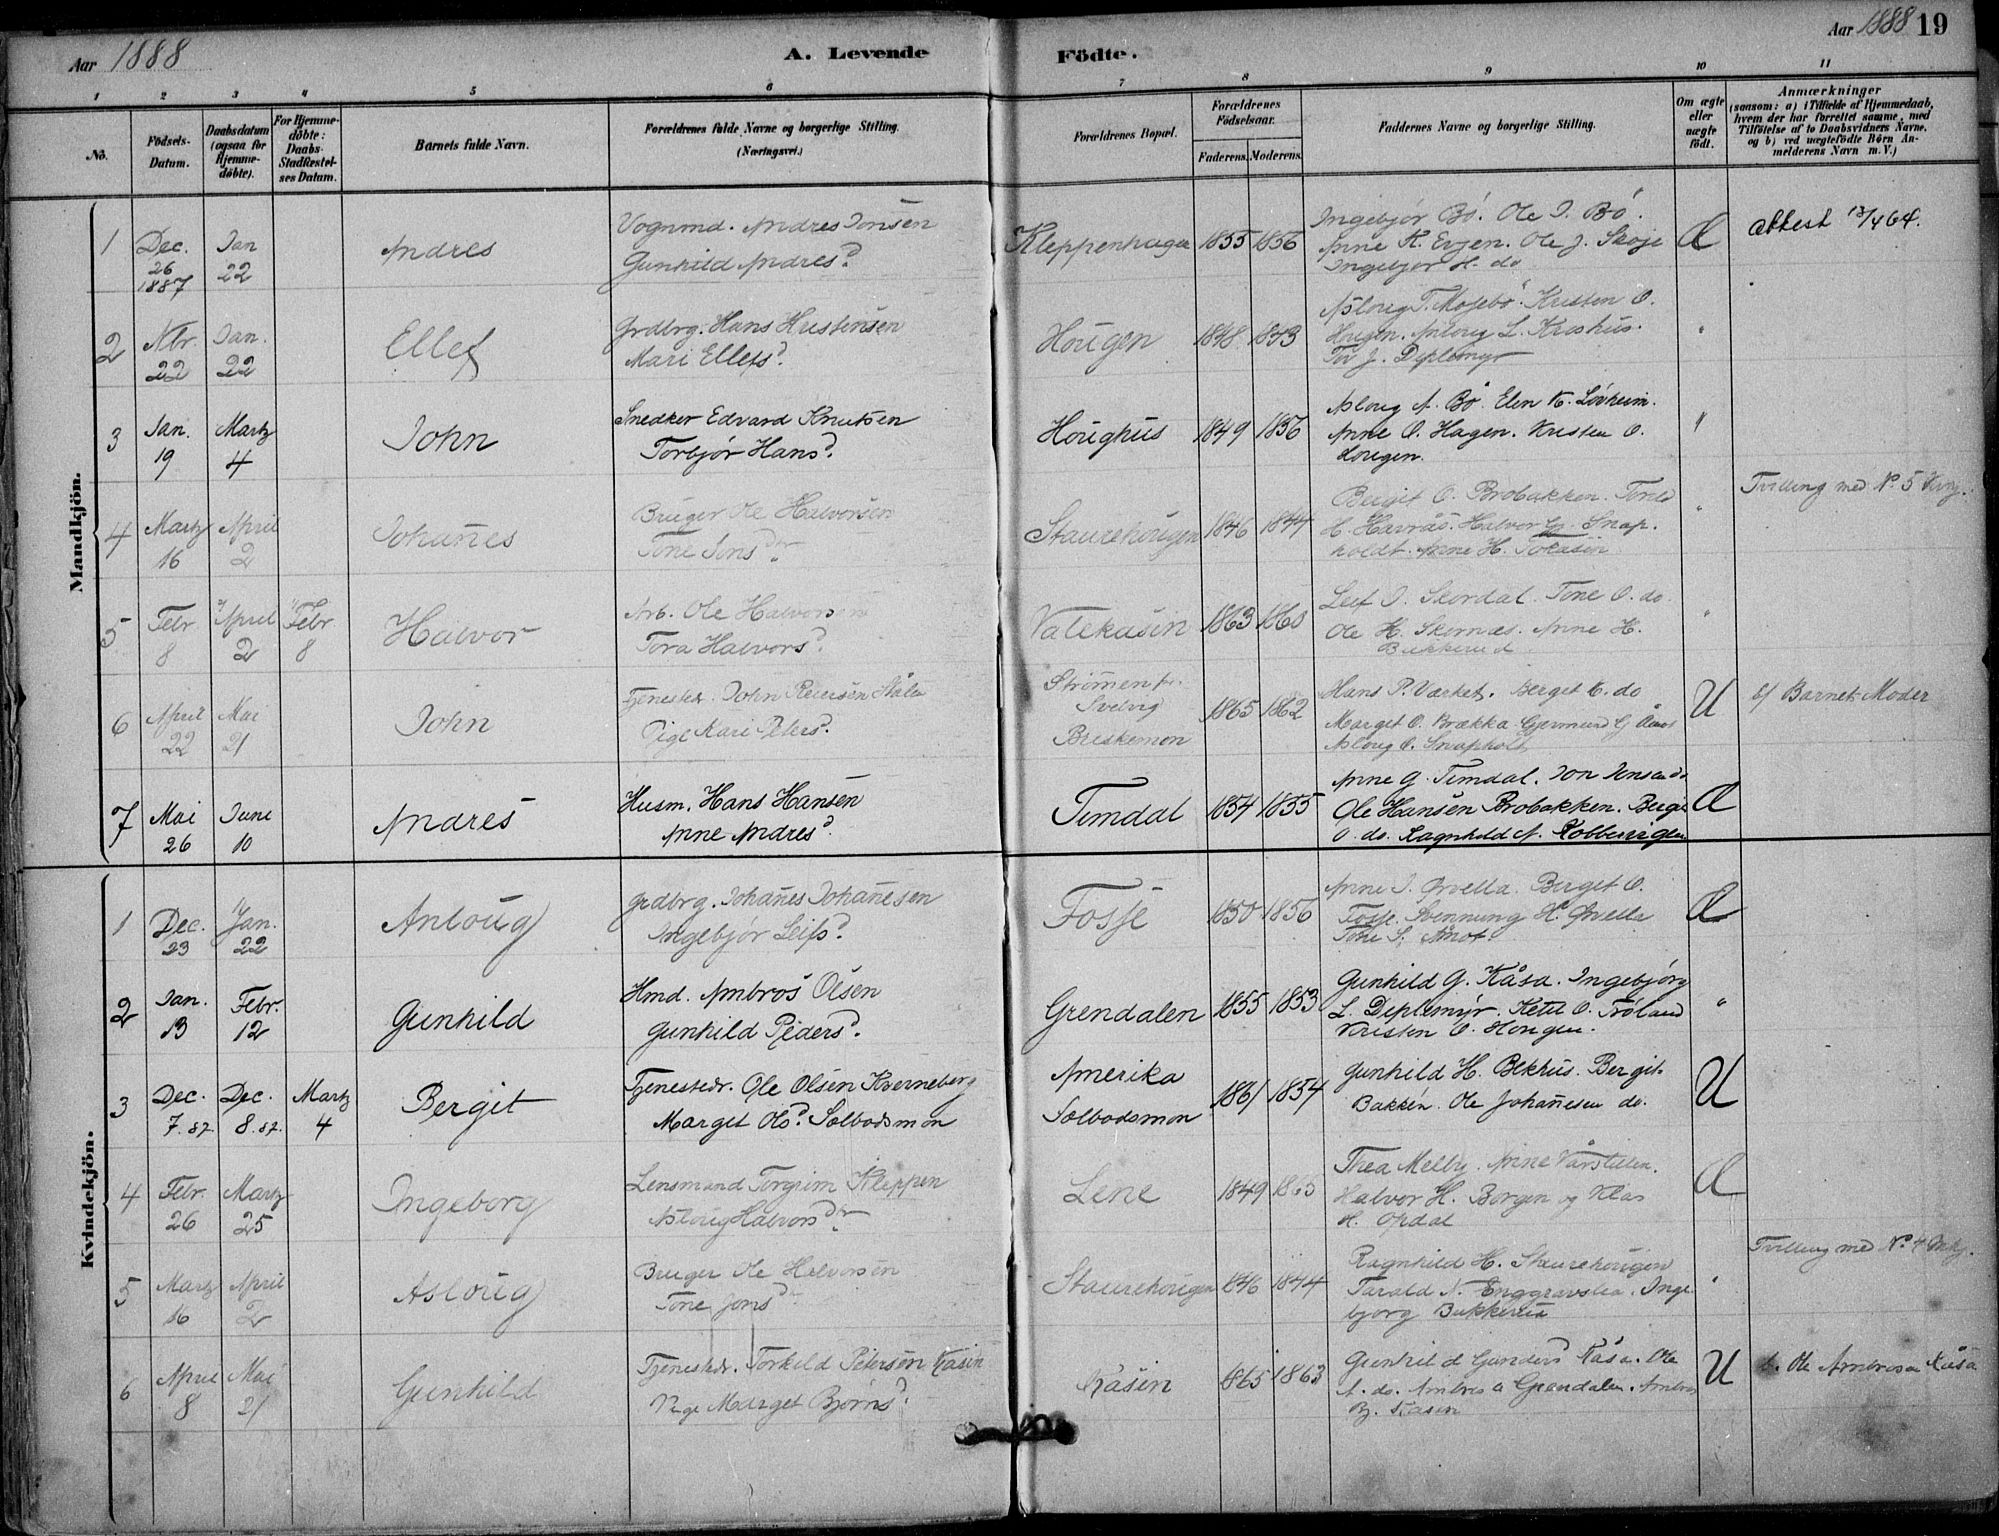 Aar 1888
A. Levende Födte.
Aar 1888 19
1 2 3 4 5 6 7 8 9 10 11
No.
Födsels-Datum.
Daabsdatum (ogsaa for Hjemmedöbte).
For Hjemmedöbte: Daabs-Stadfæstelses Datum.
Barnets fulde Navn.
Forældrenes fulde Navne og borgerlige Stilling. (Næringsvei.)
Forældrenes Bopæl.
Forældrenes Födselsaar.
Faderens. Moderens.
Faddernes Navne og borgerlige Stilling.
Om ægte eller uægte födt.
Anmærkninger
(saasom: a) i Tilfælde af Hjemmedaab, hvem der har forrettet samme, med Tilföielse af to Daabsvidners Navne, og b) ved uægtefödte Börn Anmelderens Navn m. V.)
Mandkjön.
1 Dec. 26 1887 Jan 22 Andres
Vognmd. Andres Jonsen
Gunhild Andresd.
Kleppenhagen 1855 1856
Ingebjør Bö. Ole J. Bö.
Anne K. Evjen. Ole J. Skoje
Ingebjør H. do
Æ
Attest 13/4 64.
2 Nbr. 22 Jan. 22 Ellef
Grdbrg. Hans Kristensen
Mari Ellefsd.
Hougen 1848 1843
Asloug T. Mosebö. Kristen O.
Hougen. Asloug L. Kroshus.
Tov J. Deplemyr
"
3 Jan. 19 Martz 4 John
Snedker Edvard Knutsen
Torbjør Hansd.
Houghus 1849 1856
Asloug A. Bö. Elen K. Lövheim.
Anne O. Hagen. Kristen O.
Hougen.
"
4 Martz 16 April 2 Johañes
Bruger Ole Halvorsen
Tone Jonsdr.
Staurehougen 1846 1844
Bergit O. Brobakken. Tone
H. Havrås. Halvor G. Snapholdt. Anne H. Tokasin
"
Tvilling med No 5 Kvkj.
5 Febr. 8 April 2 Febr. 8 Halvor
Arb. Ole Halvorsen
Tora Halvorsd.
Valekasin 1863 1860
Leif J. Skordal. Tone O. do.
Ole H. Skornæs. Anne H.
Bukkerud
"
6 April 22 Mai 21 John
Tjenestedr. John Petersen
Pige Kari Petersd.
Strömen pr. Svelvig
Briskemon
1865 1862
Hans P. Værket. Berget K. do
Marget O. Brækka. Gjermund G. Åmot
Asloug O. Snapholt
U
b/ Barnets Moder
7 Mai 26 June 10 Andres
Husm. Hans Hansen
Anne Andresd.
Temdal 1854 1855
Anne G. Temdal. Jon Jonsen do
Ole Hansen Brobakken. Bergit
O. do. Ragnhild A.
Æ
Kvindekjön.
1 Dec. 23 Jan. 22 Anloug
Grdbrg. Johañes Johañesen
Ingebjør Leifsd.
Fosse 1850 1856
Anne J. Ørvella. Berget O.
Fosse. Svennung H. Ørvella
Tone S. Åmot.
Æ
2 Jan. 13 Febr. 12 Gunhild
Hmd. Ambros Olsen
Gunhild Pedersd.
Grendalen 1855 1853
Gunhild G. Kåsa. Ingebjörg
L. Deplemyr. Ketil O. Tröland
Kristen O. Hougen.
"
3 Dec. 7. 87. Dec. 8. 87. Martz 4 Bergit
Tjenestedr. Ole Olsen Kverneberg
Marget Olsd. Solbodsmon
Amerika
Solbodsmon
1861 1854
Gunhild H. Bekhus. Bergit
Bakken. Ole Johañesen do.
U
4 Febr. 26 Martz 25 Ingeborg
Lensmand Torgrim Kleppen
Asloug Halvorsdr.
Lene 1849 1855
Thea Melby. Anne Vårstillen.
Halvor H. Borgen og Klas
H. Opdal
Æ
5 Martz 16 April 2 Asloug
Bruger Ole Halvorsen
Tone Jonsd.
Staurehougen 1846 1844
Ragnhild H. Staurehougen
Tarald N. Enggravslia. Ingebjorg Bukkerud
"
Tvilling med No 4 Mkj.
6 April 8 Mai 21 Gunhild
Tjenestedr. Torkild Petersen Kasin
Pige Marget Bjørnsd.
Kasin 1865 1863
Gunhild Gunders Kåsa. Ole
A. do. Ambros Grendalen.
Bj. Kasin
U
b. Ole Ambrosen Kåsa